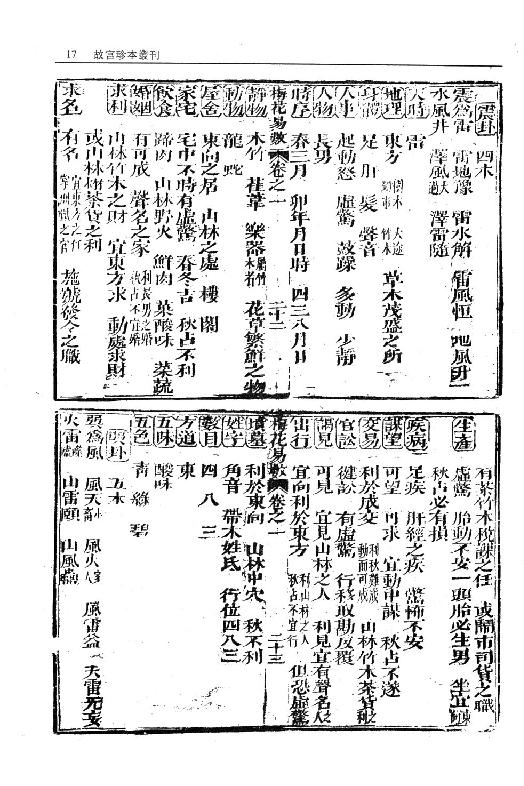 17 故宮珍本叢刊
震卦 四木
震為雷 雷地豫 雷水解 雷風恒 地風升
水風井 澤風大過 澤雷隨
天時 雷
地理 東方 樹木 鬧市 大途 竹木 草木茂盛之所
身體 足 肝 髮 聲音
人事 起動 怒 虛驚 鼓躁 多動 少靜
人物 長男
時序 春三月 卯年月日時 四三八月日
梅花易數 卷之一 二十二
靜物 木竹 萑葦 樂器 花草繁鮮之物
動物 龍 蛇
屋舍 東向之居 山林之處 樓閣
家宅 宅中不時有虛驚 春冬吉 秋占不利
飲食 蹄 肉 山林野火 鮮肉 菓酸味 菜蔬
婚姻 有可成 聲名之家 利長男之婚 秋占不宜婚
求利 山林竹木之財 宜東方求 動處求財
或山林竹木茶貨之利
求名 有名 宜東方之任 施號發令之職
有茶竹木稅課之任 或鬧市司貨之職
生產 虛驚 胎動不安 頭胎必生男 坐宜東向
秋占必有損
疾病 足疾 肝經之疾 驚怖不安
謀望 可望 可求 宜動中謀 秋占不遂
交易 利於成交 秋難成 動而可成 山林竹木茶貨
官訟 健訟 有虛驚 行移取勘反覆
謁見 可見 宜見山林之人 利見宜有聲名人
出行 宜向利於東方 利山林之人 秋占不宜行 但恐虛驚
梅花易數 卷之一 二十三
墳墓 利於東向 山林中穴 秋不利
姓字 角音 帶木姓氏 行位四八三
數目 四 八 三
方道 東
五味 酸味
五色 青 綠 碧
巽卦 五木
巽為風 風天小畜 風火家人 風雷益 天雷无妄
火雷噬嗑 山雷頤 山風蠱